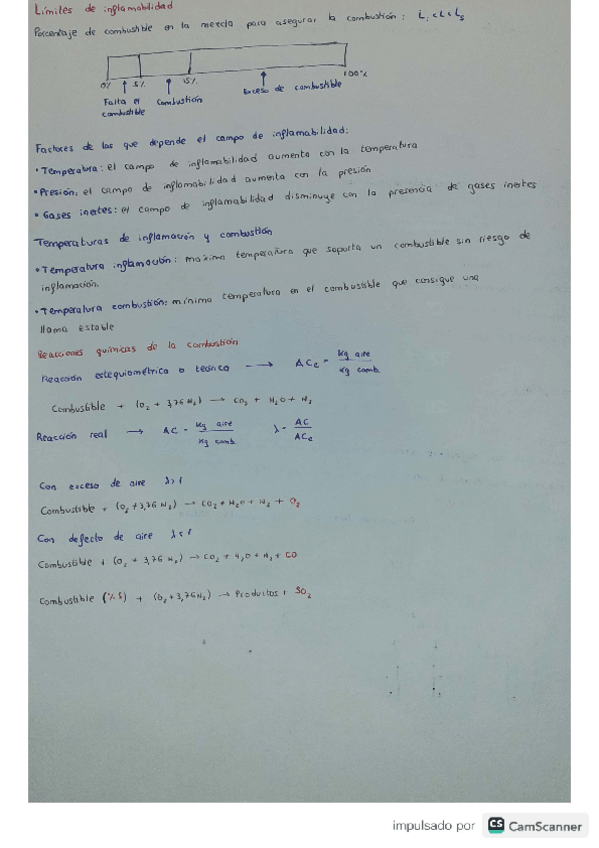 Límites de inflamabilidad
Porcentaje de combustible en la mezcla para asegurar la combustión: Li<L<Ls
0% 5% 15% 100%
Falta el combustible
Combustión
Exceso de combustible
Factores de los que depende el campo de inflamabilidad:
• Temperatura: el campo de inflamabilidad aumenta con la temperatura
• Presión, el campo de inflamabilidad aumenta con la presión
• Gases inertes: el campo de inflamabilidad disminuye con la presencia de gases inertes
Temperaturas de inflamación y combustión
• Temperatura inflamación: máxima temperatura que soporta un combustible sin riesgo de
inflamación.
• Temperatura combustión: mínima temperatura en el combustible que consigue una
llama estable
Reacciones químicas de la combustión
Reacción estequiométrica o teórica → ACe = kg aire / kg comb.
Combustible + (O2 + 3,76 N2) → CO2 + H2O + N2
Reacción real → AC = kg aire / kg comb λ = AC / ACe
Con exceso de aire λ>1
Combustible + (O2 + 3,76 N2) → CO2 + H2O + N2 + O2
Con defecto de aire λ<1
Combustible + (O2 + 3,76 N2) → CO2 + H2O + N2 + CO
Combustible (% S) + (O2 + 3,76 N2) → Productos + SO2
impulsado por CS CamScanner